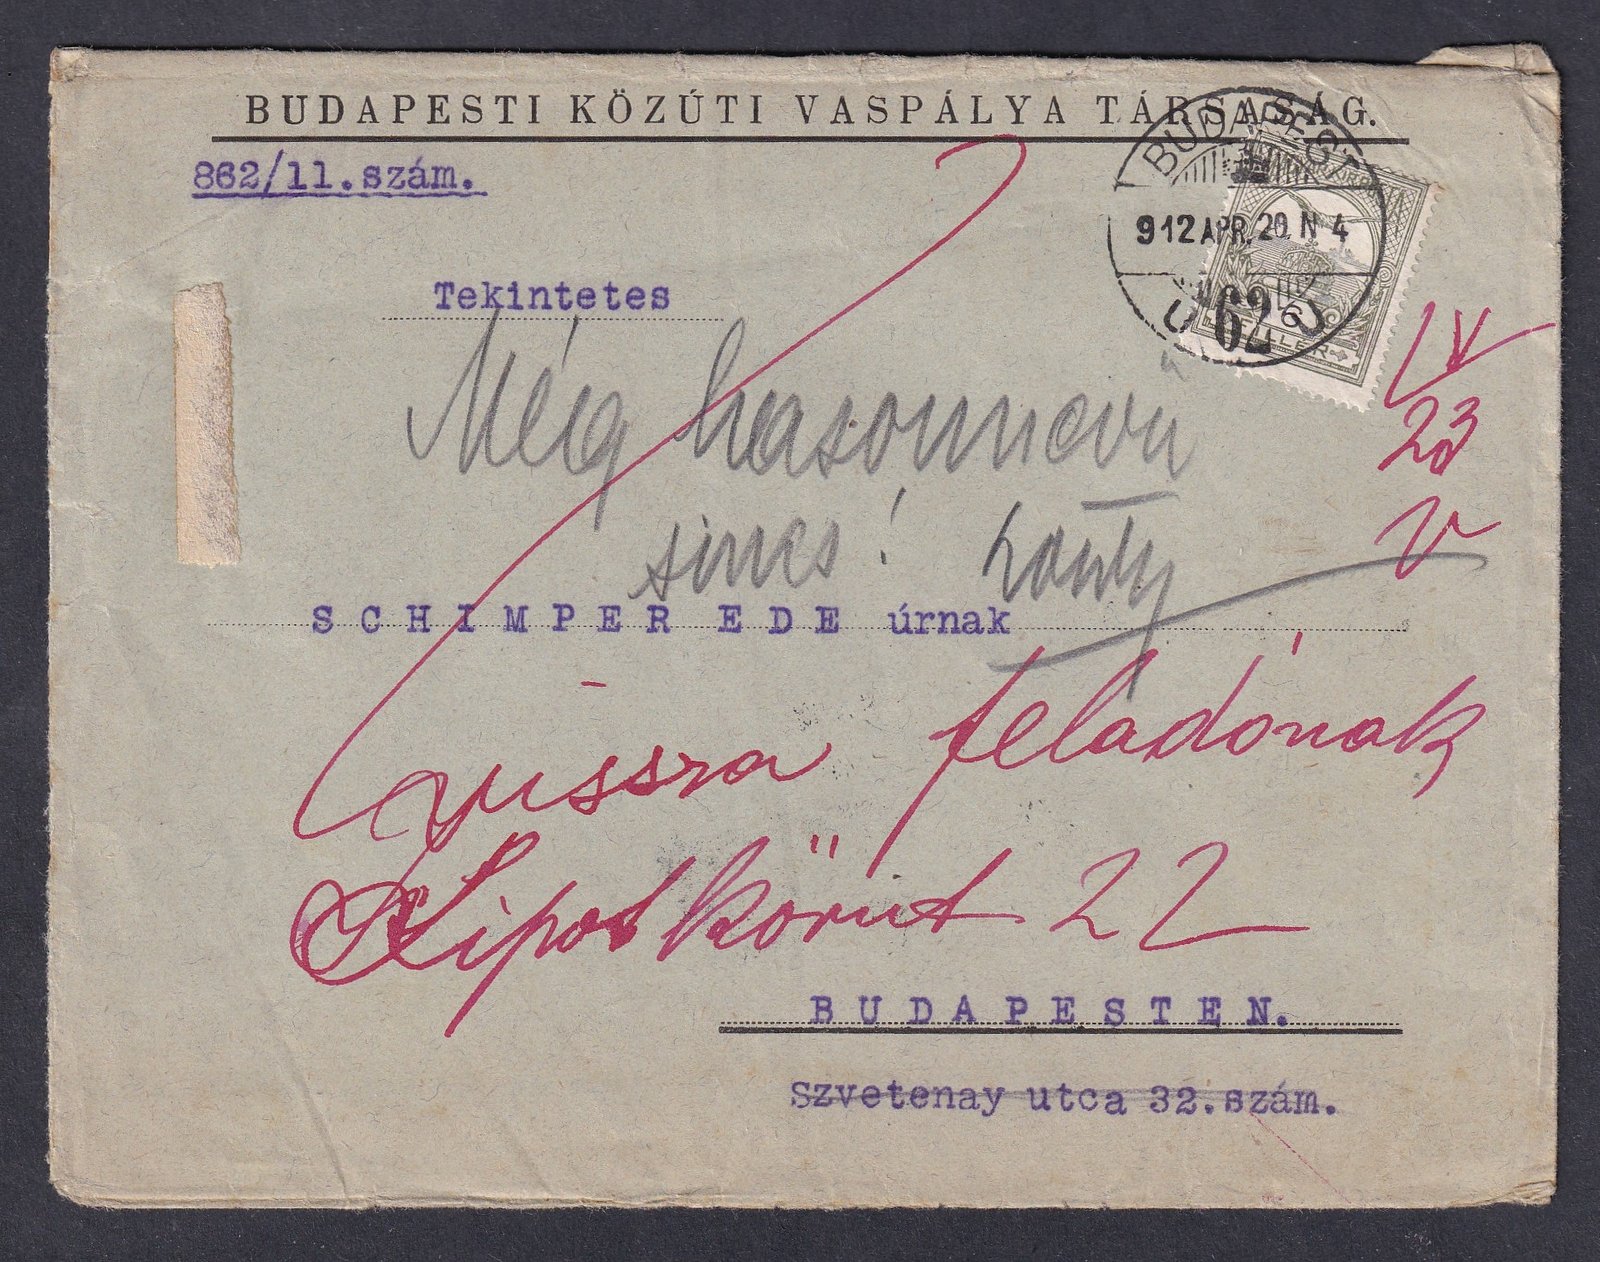 BUDAPESTI KÖZÚTI VASPÁLYA TÁRSASÁG.
862/11.szám.
BUDAPEST
912 APR. 20. N 4
62
FILLÉR
Tekintetes
IV
23
Még hasonnevü
sincs!
SCHIMPER EDE úrnak
vissza feladónak
Lipot körut 22
BUDAPESTEN.
Szvetenay utca 32.szám.